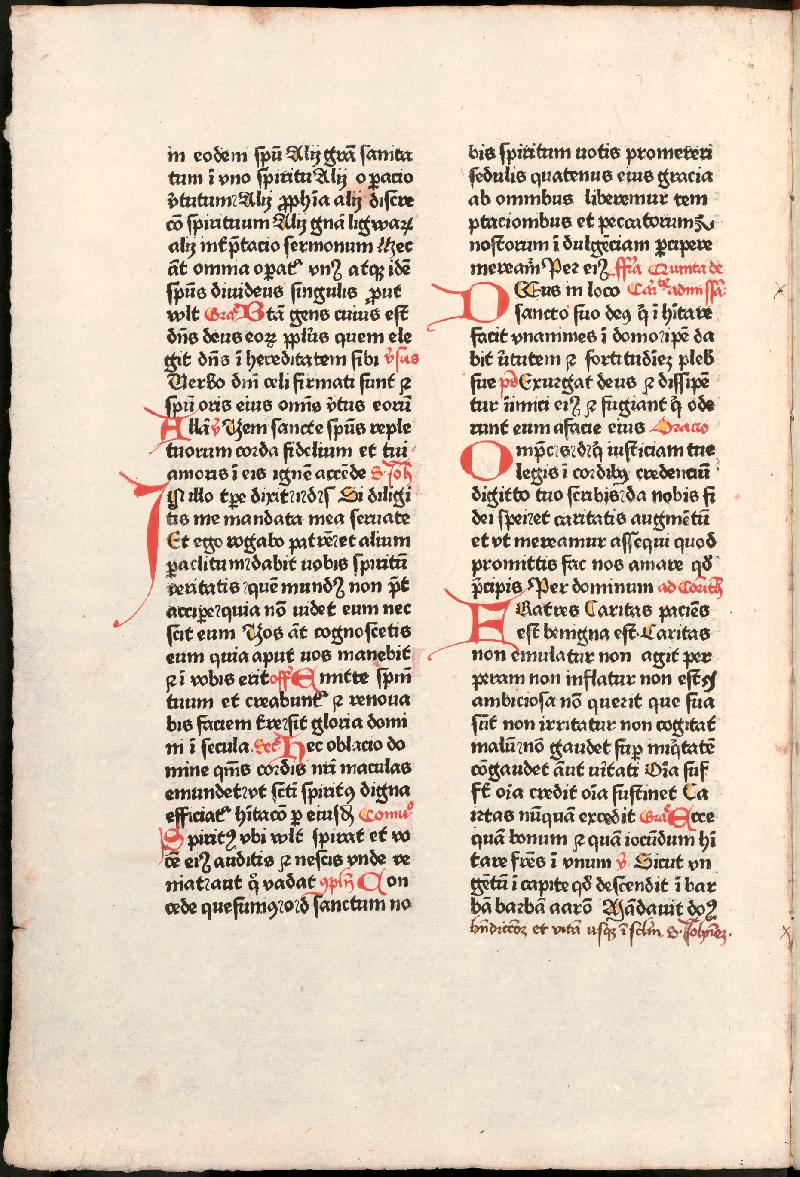 in eodem spũ Alij grã sanita
tum ĩ vno spiritu Alij opacio
v̓tutum Alij ꝓphĩa alij discre
cõ spirituum Alij gnã ligwaꝝ
alij int̓p̃tacio sermonum Hec
ãt omnia opat᷑ vnꝰ atqꝫ idẽ
spũs diuidens singulis ꝓut
wlt Gra᷑ Btã gens cuius est
dñs deus eoꝝ pp̃lus quem ele
git dñs ĩ hereditatem sibi v̓sus
Verbo dñi celi firmati sunt ⁊
spũ oris eius omĩs v̓tus eorũ
Alla᷑ v̓ Veni sancte spũs reple
tuorum corda fidelium et tui
amoris ĩ eis ignẽ accẽde S. Joh
In illo tꝑe dixit ihs̃ dis̃ Si diligi
tis me mandata mea seruate
Et ego rogabo patrẽ et alium
ꝑaclitum dabit uobis spiritũ
veritatis quẽ mundꝰ non p̃t
accipe᷑ quia nõ uidet eum nec
scit eum Vos ãt cognoscetis
eum quia aput uos manebit
⁊ ĩ vobis erit off᷑ Emitte spm̃
tuum et creabunt᷑ ⁊ renoua
bis faciem t̓re sit gloria domi
ni ĩ secula Sec᷑ Hec oblacio do
mine qm̃s cordis nr̃i maculas
emundet vt scti spiritꝰ digna
efficiat᷑ hĩtacõ ꝑ eiusdẽ Comu᷑
Spiritꝰ vbi wlt spirat et vo
cẽ eiꝰ auditis ⁊ nescis vnde ve
niat aut qͦ vadat ꝯpln̄ Con
cede quesumꝰ sanctum no
bis spiritum uotis promereri
sedulis quatenus eius gracia
ab omnibus liberemur tem
ptacionibus et peccatorum
nostorum ĩ dulgẽciam ꝑcipere
meream᷑ Per eiꝰ ff̃ia Quinta de
DEus in loco Cari᷑te admissa᷑
sancto suo deꝰ q̃ ĩ hĩtare
facit vnanimes ĩ domo ipẽ da
bit v̓tutem ⁊ fortitudiẽz pleb̃
sue ps᷑ Exurgat deus ⁊ dissipẽ
tur iĩmici eiꝰ ⁊ fugiant q̃ ode
runt eum afacie eius Oracio
Omp̃c s̃ ds̃ q̃ iusticiam tue
legis ĩ cordibꝰ credenciũ
digitto tuo scribis da nobis fi
dei spei et caritatis augmẽtũ
et vt mereamur assequi quod
promittis fac nos amare qd̃
p̃cipis Per dominum ad Corith
FRatres Caritas paciẽs
est benigna est Caritas
non emulatur non agit per
peram non inflatur non est
ambiciosa nõ querit que sua
sũt non irritatur non cogitat
malũ nõ gaudet suꝑ iniq̃tatẽ
cõgaudet ãut v̓itati Oĩa suf
fĩt oĩa credit oĩa sustinet Ca
ritas nũquam excedit Gra᷑ Ecce
quã bonum ⁊ quã iocũdum hĩ
tare frẽs ĩ vnum v̓ Sicut vn
gẽtũ ĩ capite qd̃ descendit ĩ bar
bã barbã aarõ Mãdauit doꝰ
bñdictõẽ et vitã usqꝫ ĩ sclm̃ S. Johñez.